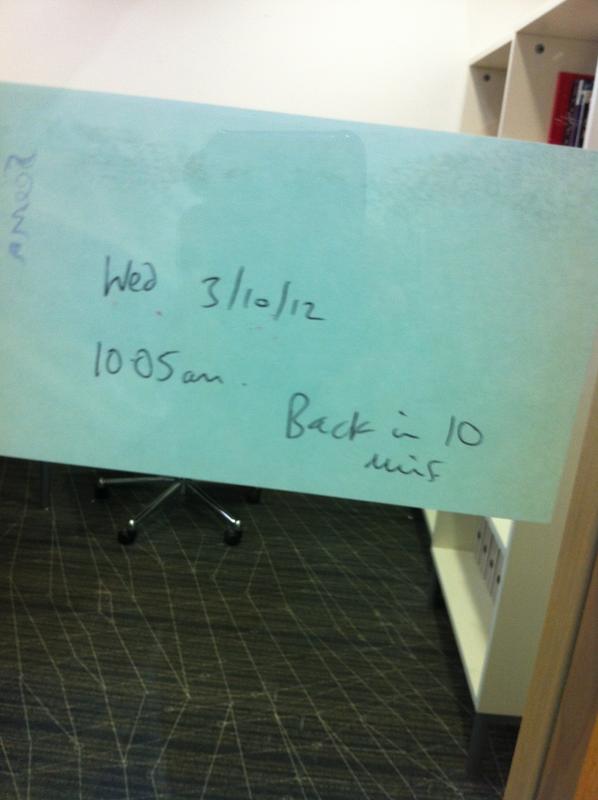 Wed 3/10/12
10:05am.
Back in 10
mins